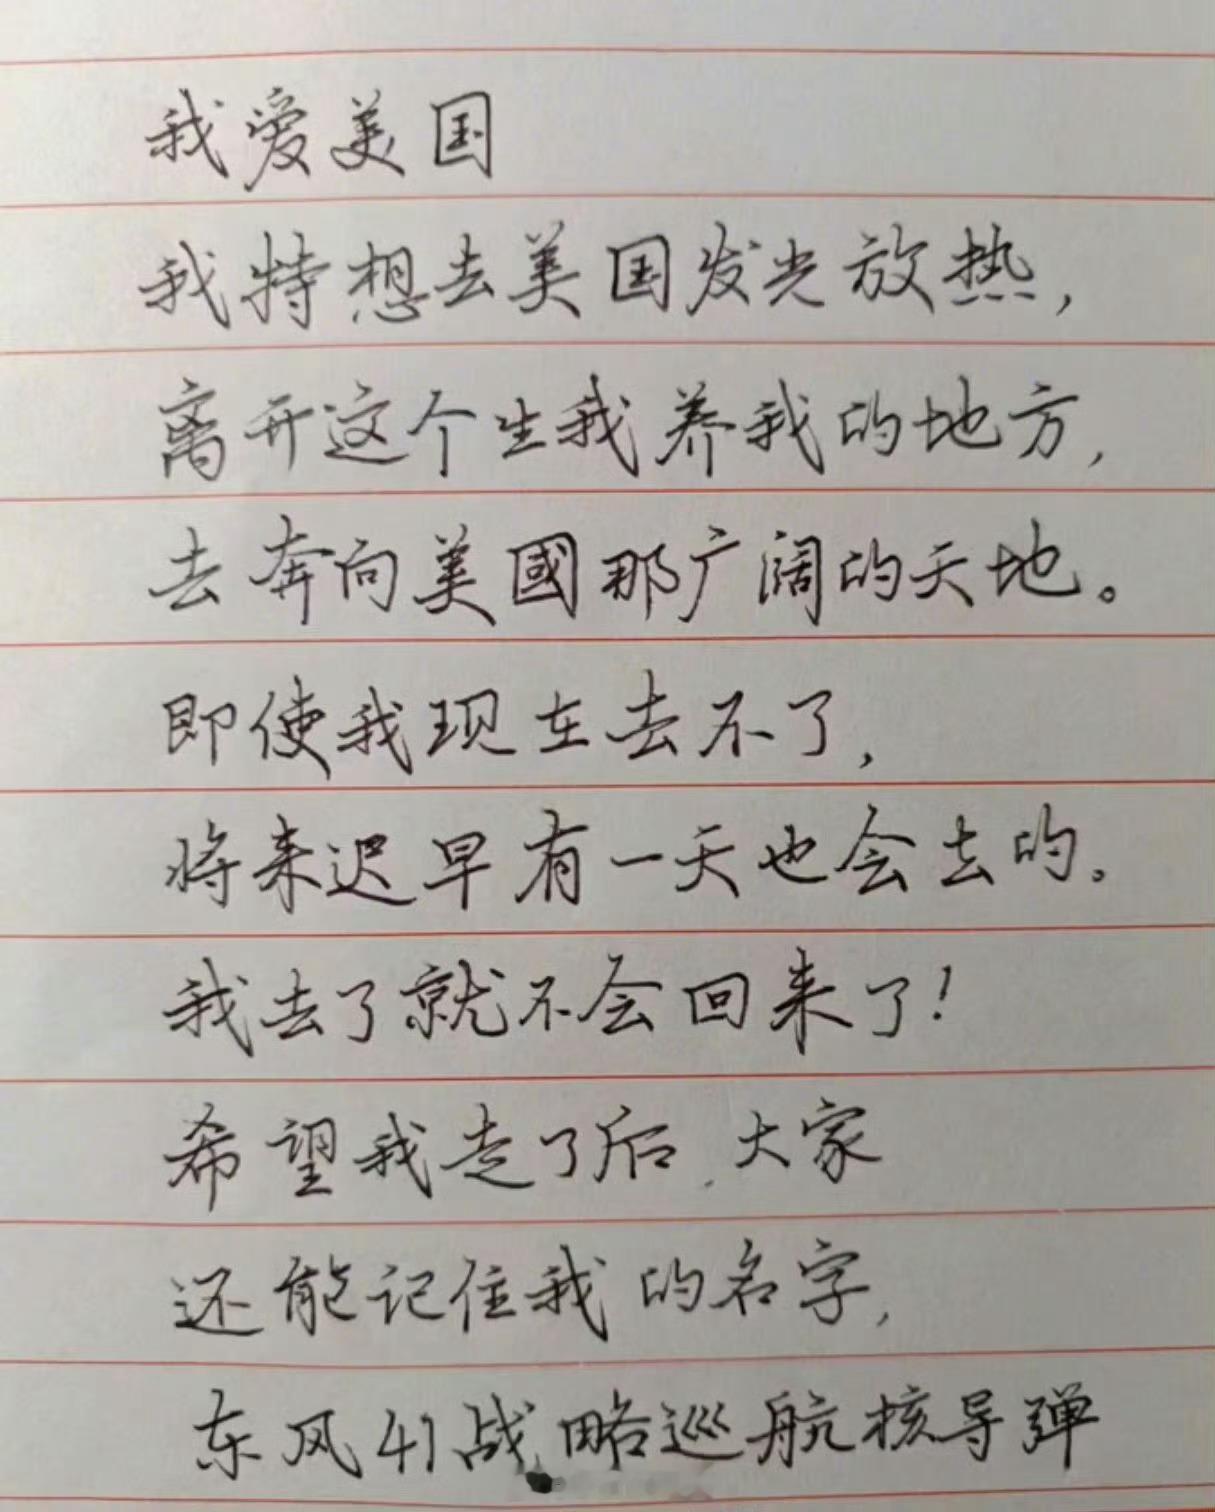 我爱美国
我特想去美国发光放热，
离开这个生我养我的地方，
去奔向美國那广阔的天地。
即使我现在去不了，
将来迟早有一天也会去的。
我去了就不会回来了！
希望我走了后，大家
还能记住我的名字，
东风41战略巡航核导弹